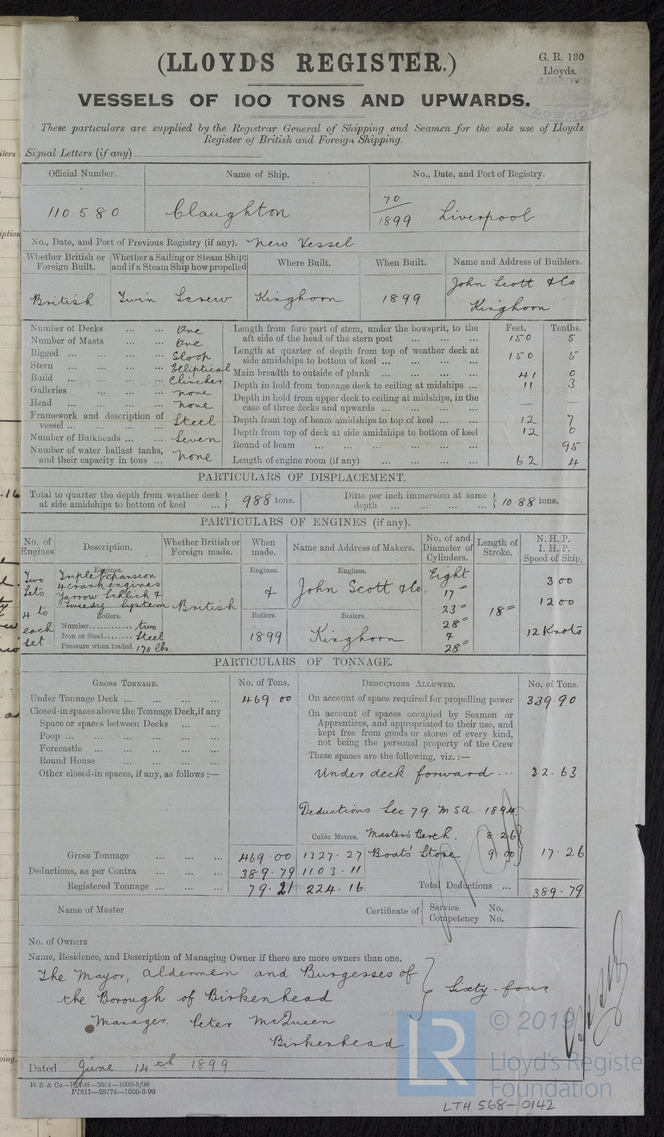 (LLOYDS REGISTER.)
G. R. 130
Lloyds.
VESSELS OF 100 TONS AND UPWARDS.
These particulars are supplied by the Registrar General of Shipping and Seamen for the sole use of Lloyds
Register of British and Foreign Shipping.
Signal Letters (if any)
Official Number. Name of Ship. No., Date, and Port of Registry.
110580 Claughton 70/1899 Liverpool
No., Date, and Port of Previous Registry (if any). New Vessel
Whether British or Foreign Built. Whether a Sailing or Steam Ship; and if a Steam Ship how propelled Where Built. When Built. Name and Address of Builders.
British Twin Screw Kinghorn 1899 John Scott & Co Kinghorn
Number of Decks ... ... One
Number of Masts ... ... One
Rigged ... ... ... ... Sloop
Stern ... ... ... ... Elliptical
Build ... ... ... ... Clincher
Galleries ... ... ... none
Head ... ... ... ... None
Framework and description of vessel ... ... ... ... Steel
Number of Bulkheads ... ... Seven
Number of water ballast tanks, and their capacity in tons ... None
Feet. Tenths.
Length from fore part of stem, under the bowsprit, to the aft side of the head of the stern post ... ... ... 150 5
Length at quarter of depth from top of weather deck at side amidships to bottom of keel ... ... ... ... 150 5
Main breadth to outside of plank ... ... ... ... 41 0
Depth in hold from tonnage deck to ceiling at midships ... 11 3
Depth in hold from upper deck to ceiling at midships, in the case of three decks and upwards ... ... ... ... — —
Depth from top of beam amidships to top of keel ... ... 12 7
Depth from top of deck at side amidships to bottom of keel 12 0
Round of beam ... ... ... ... ... ... 95
Length of engine room (if any) ... ... ... ... 62 4
PARTICULARS OF DISPLACEMENT.
Total to quarter the depth from weather deck at side amidships to bottom of keel ... 988 tons.
Ditto per inch immersion at same depth ... ... ... ... 10.88 tons.
PARTICULARS OF ENGINES (if any).
No. of Engines Description. Whether British or Foreign made. When made. Name and Address of Makers. No. of and Diameter of Cylinders. Length of Stroke. N. H. P. I. H. P. Speed of Ship.
Two Sets 4 to each set
Engines.
Triple Expansion
4 crank engines
Yarrow Schlick &
Tweedy System
British
Boilers.
Number............ two
Iron or Steel........ Steel
Pressure when loaded 170 lbs
Engines.
&
Boilers.
1899
Engines.
John Scott & Co.
Boilers.
Kinghorn
Eight
17"
23"
28"
&
28"
18"
300
1200
12 Knots
PARTICULARS OF TONNAGE.
GROSS TONNAGE. No. of Tons. DEDUCTIONS ALLOWED. No. of Tons.
Under Tonnage Deck ... ... ... 469 00
Closed-in spaces above the Tonnage Deck, if any
Space or spaces between Decks ... ...
Poop ... ... ... ... ... ...
Forecastle ... ... ... ... ...
Round House ... ... ... ...
Other closed-in spaces, if any, as follows :—
On account of space required for propelling power 339.90
On account of spaces occupied by Seamen or Apprentices, and appropriated to their use, and kept free from goods or stores of every kind, not being the personal property of the Crew
These spaces are the following, viz. :—
Under deck forward ... 32.63
Deductions Sec 79. M S A. 1894
Cubic Metres. Master's Berth. 8.26
Gross Tonnage ... ... 469.00 1327.27 Boats' Store 9.00 17.26
Deductions, as per Contra ... ... ... 389.79 1103.11
Registered Tonnage ... ... 79.21 224.16 Total Deductions ... 389.79
Name of Master Certificate of Service No.
Competency No.
No. of Owners
Name, Residence, and Description of Managing Owner if there are more owners than one.
The Mayor, Aldermen and Burgesses of
the Borough of Birkenhead
Sixty-four
Manager. Peter McQueen
Birkenhead
Dated June 14th 1899
P7811—28774—1000-3-99
© 2019
LR
Lloyd's Registe
Foundation
LTH 568-0142